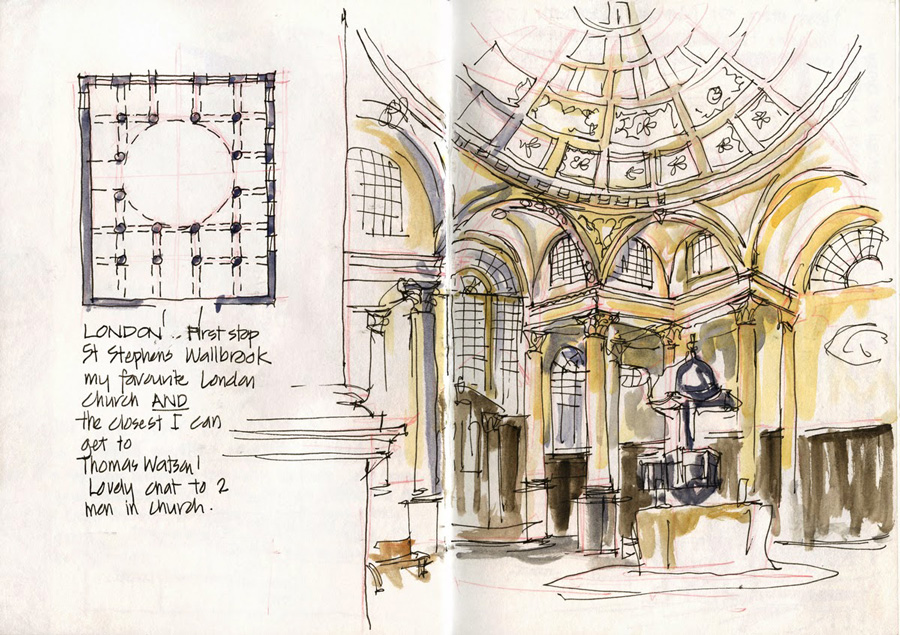 LONDON .. First stop
St Stephens Wallbrook
my favourite London
Church AND
the closest I can
get to
Thomas Watson!
Lovely chat to 2
men in church.